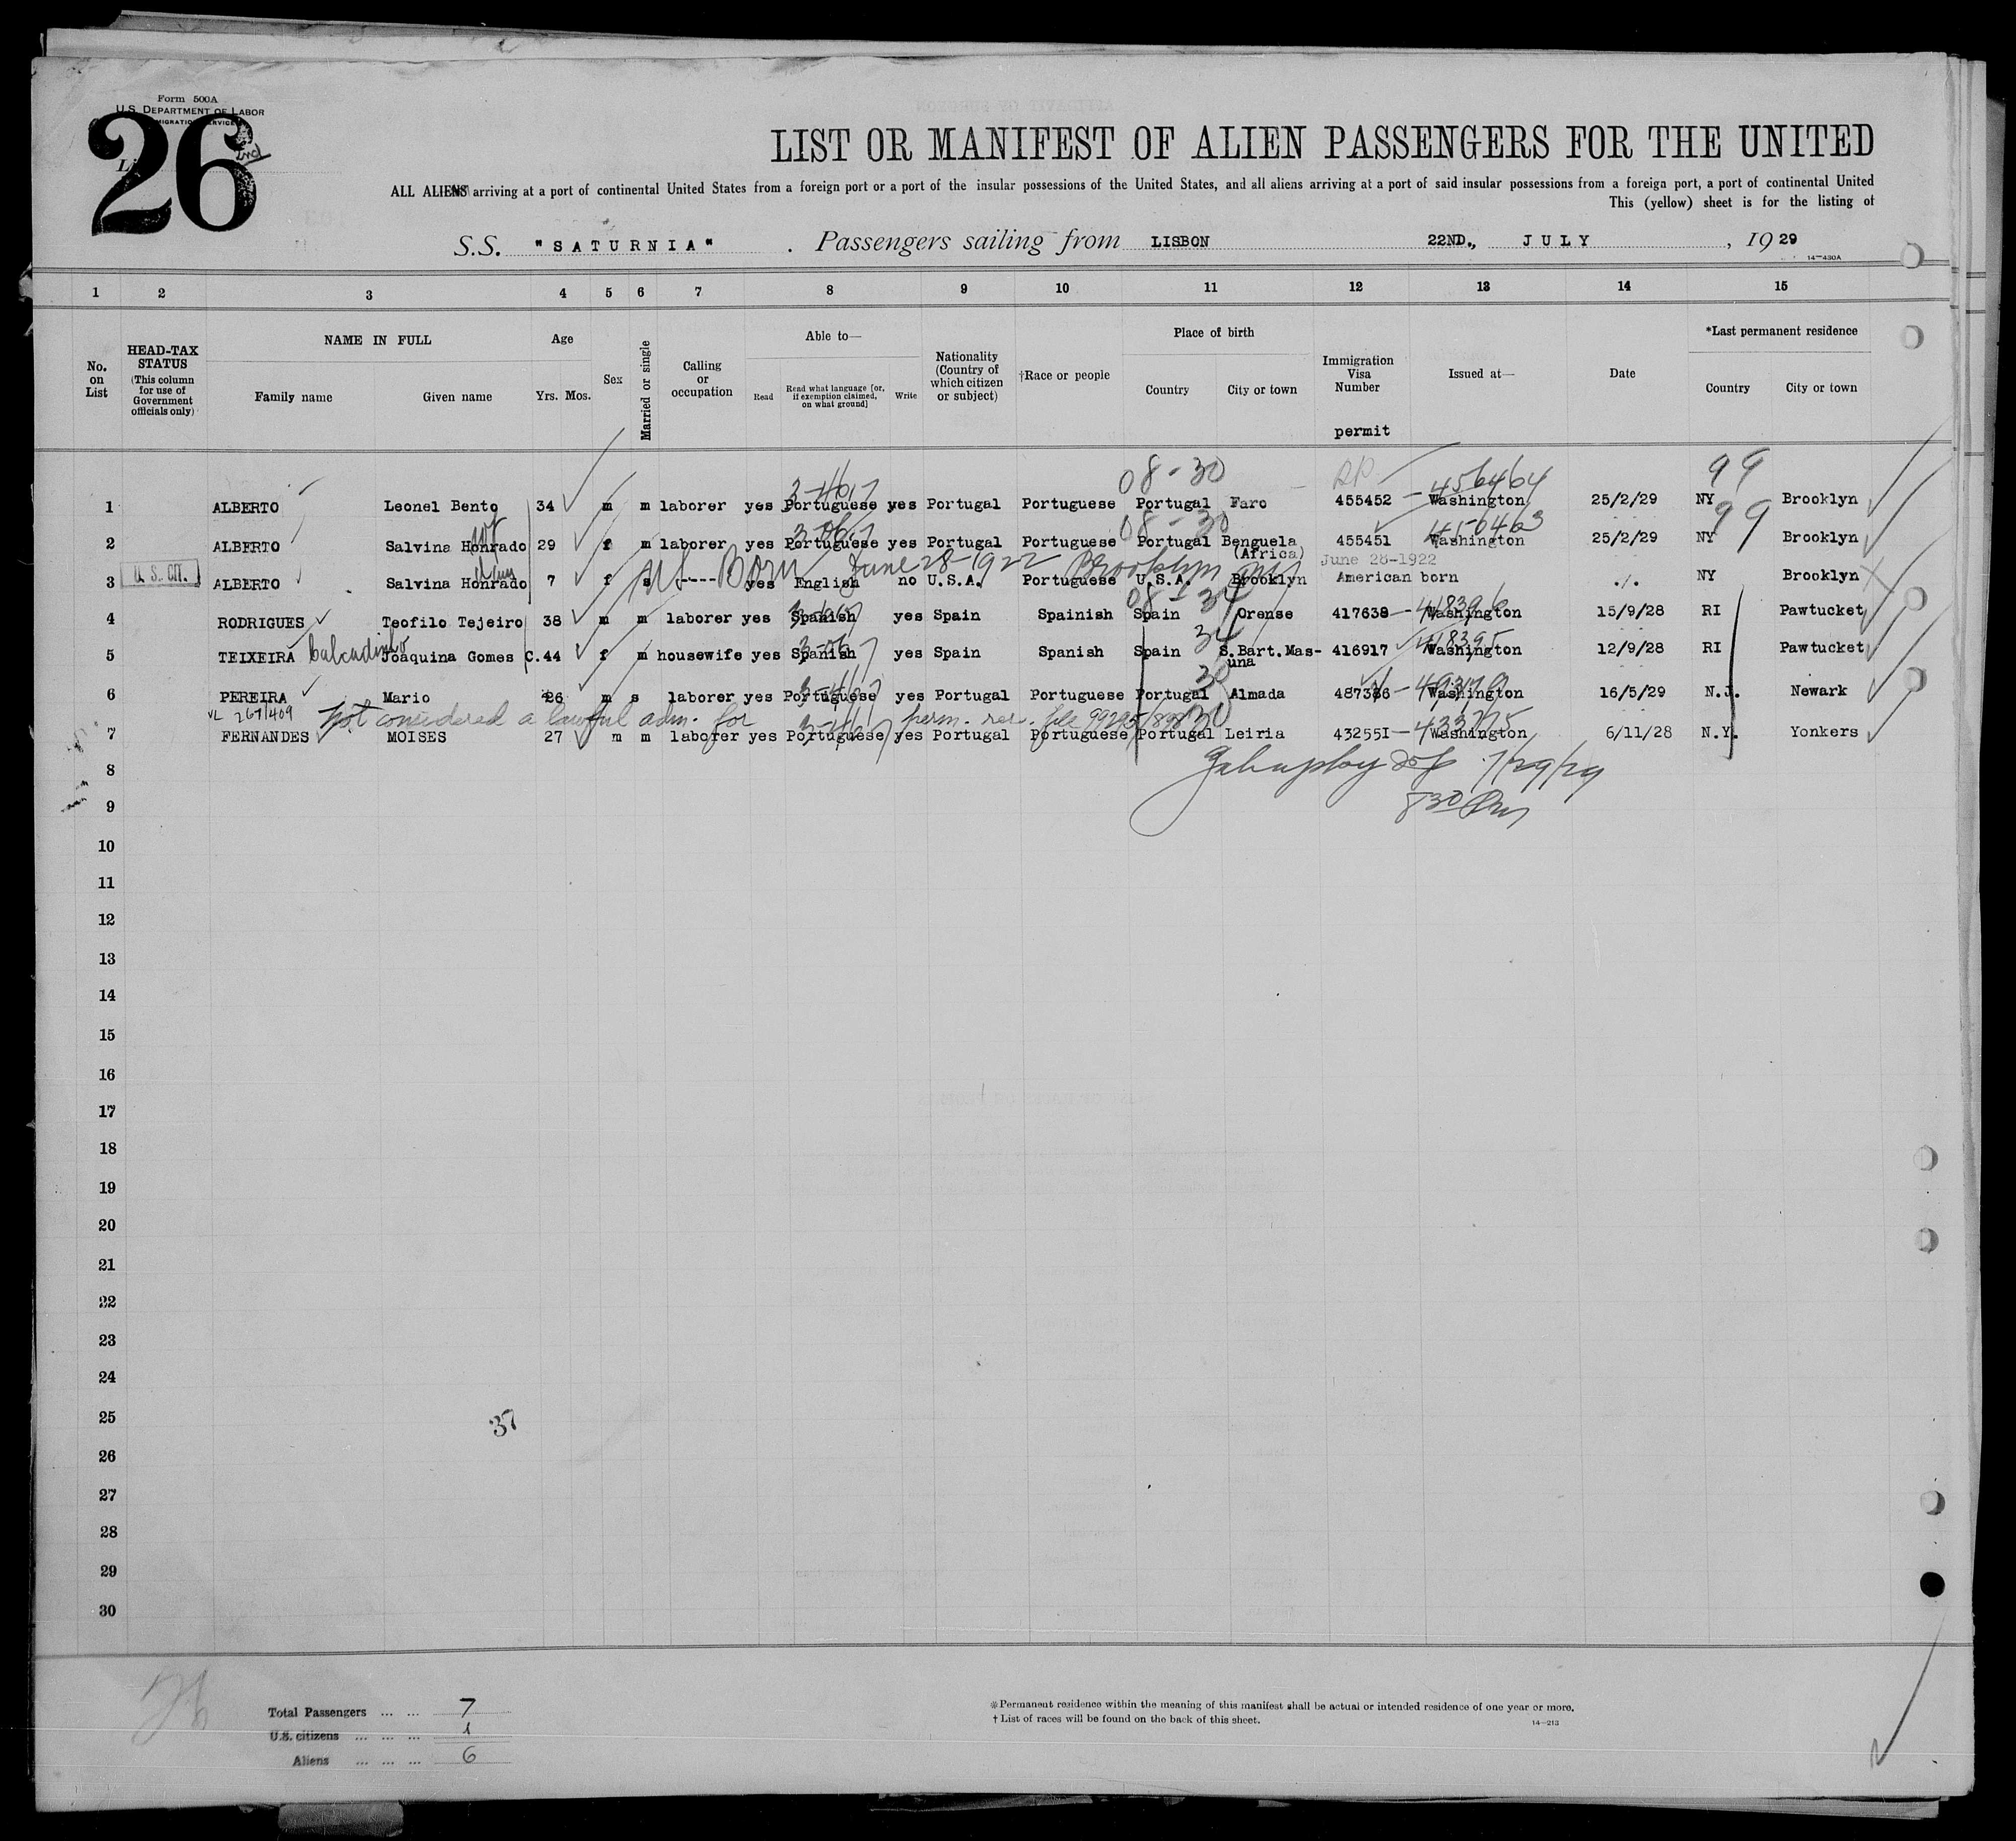 Form 500A
U.S. DEPARTMENT OF LABOR
26
LIST OR MANIFEST OF ALIEN PASSENGERS FOR THE UNITED
ALL ALIENS arriving at a port of continental United States from a foreign port or a port of the insular possessions of the United States, and all aliens arriving at a port of said insular possessions from a foreign port, a port of continental United
This (yellow) sheet is for the listing of
S.S. "SATURNIA" . Passengers sailing from LISBON 22ND., JULY , 19 29
14—430A
1 2 3 4 5 6 7 8 9 10 11 12 13 14 15
No. on List
HEAD-TAX STATUS (This column for use of Government officials only)
NAME IN FULL
Family name Given name
Age
Yrs. Mos.
Sex
Married or single
Calling or occupation
Able to—
Read Read what language [or, if exemption claimed, on what ground] Write
Nationality (Country of which citizen or subject)
†Race or people
Place of birth
Country City or town
Immigration Visa Number
permit
Issued at—
Date
*Last permanent residence
Country City or town
08-30 99
3-46,7 456464
1 ALBERTO Leonel Bento 34 m m laborer yes Portuguese yes Portugal Portuguese Portugal Faro 455452 — Washington 25/2/29 NY Brooklyn
wf 08-30 456463 99
2 ALBERTO Salvina Honrado 29 f m laborer yes Portuguese yes Portugal Portuguese Portugal Benguela (Africa) 455451 Washington 25/2/29 NY Brooklyn
U.S. CIT. US Born June 28-1922 Brooklyn NY June 28-1922
3 ALBERTO Salvina Honrado 7 f s ---- yes English no U.S.A. Portuguese U.S.A. Brooklyn American born ./. NY Brooklyn
08-34 418396
4 RODRIGUES Teofilo Tejeiro 38 m m laborer yes Spanish yes Spain Spainish Spain Orense 417638 - Washington 15/9/28 RI Pawtucket
34 418395
5 TEIXEIRA Joaquina Gomes C. 44 f m housewife yes Spanish yes Spain Spanish Spain S.Bart.Mas-una 416917 Washington 12/9/28 RI Pawtucket
30
6 PEREIRA Mario 26 m s laborer yes Portuguese yes Portugal Portuguese Portugal Almada 487386 - Washington 16/5/29 N.J. Newark
VL 267/409 Not considered a lawful adm. for perm. res. file 99295/898 30 433775
7 FERNANDES MOISES 27 m m laborer yes Portuguese yes Portugal Portuguese Portugal Leiria 43255I — Washington 6/11/28 N.Y. Yonkers
7/29/29
8
9
10
11
12
13
14
15
16
17
18
19
20
21
22
23
24
25
37
26
27
28
29
30
Total Passengers ... ... 7
U.S. citizens ... ... ... 1
Aliens ... ... ... 6
*Permanent residence within the meaning of this manifest shall be actual or intended residence of one year or more.
† List of races will be found on the back of this sheet.
14—213